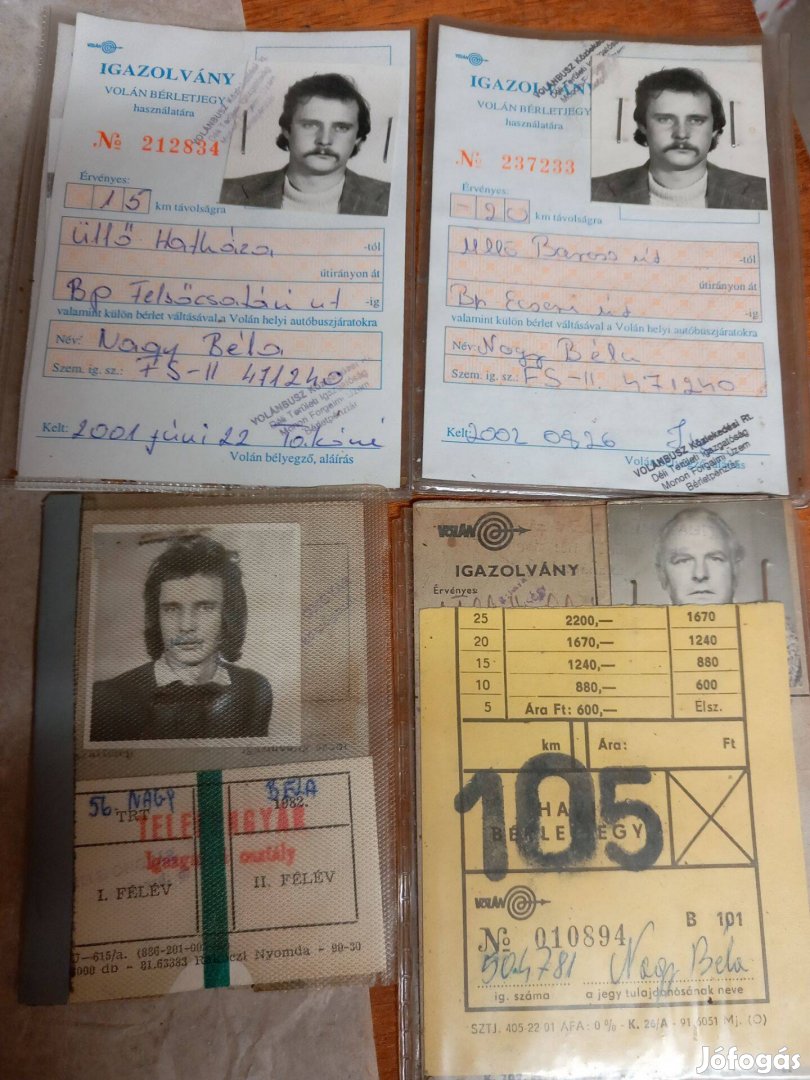 VOLÁN
IGAZOLVÁNY
VOLÁN BÉRLETJEGY
használatára
№ 212834
Érvényes:
15 km távolságra
Üllő Hatháza -tól
útirányon át
Bp Felsőcsatári út -ig
valamint külön bérlet váltásával a Volán helyi autóbuszjáratokra
Név: Nagy Béla
Szem. ig. sz.: FS-II 471240
VOLÁNBUSZ Közlekedési Rt.
Déli Területi Igazgatóság
Monori Forgalmi Üzem
Bérletpénztár
Kelt: 2001 júni 22
Volán bélyegző, aláírás
VOLÁN
IGAZOLVÁNY
VOLÁN BÉRLETJEGY
használatára
№ 237233
Érvényes:
-20 km távolságra
Üllő Baross út -tól
útirányon át
Bp Ecseri út -ig
valamint külön bérlet váltásával a Volán helyi autóbuszjáratokra
Név: Nagy Béla
Szem. ig. sz.: FS-II. 471240
Kelt: 2002 08 26
VOLÁNBUSZ Közlekedési Rt.
Déli Területi Igazgatóság
Monori Forgalmi Üzem
Bérletpénztár
56. NAGY BÉLA
TRT 1982.
osztály
I. FÉLÉV II. FÉLÉV
81.63383 Rákóczi Nyomda - 99-30
VOLÁN
IGAZOLVÁNY
Érvényes:
25 2200,— 1670
20 1670,— 1240
15 1240,— 880
10 880,— 600
5 Ára Ft: 600,— Elsz.
km Ára: Ft
105
BÉRLETJEGY
VOLÁN
B 101
№ 010894
504781 Nagy Béla
ig. száma a jegy tulajdonosának neve
SZTJ. 405-22 01 ÁFA: 0 % - K. 26/A - 91 6051 Mj. (O)
Jófogás